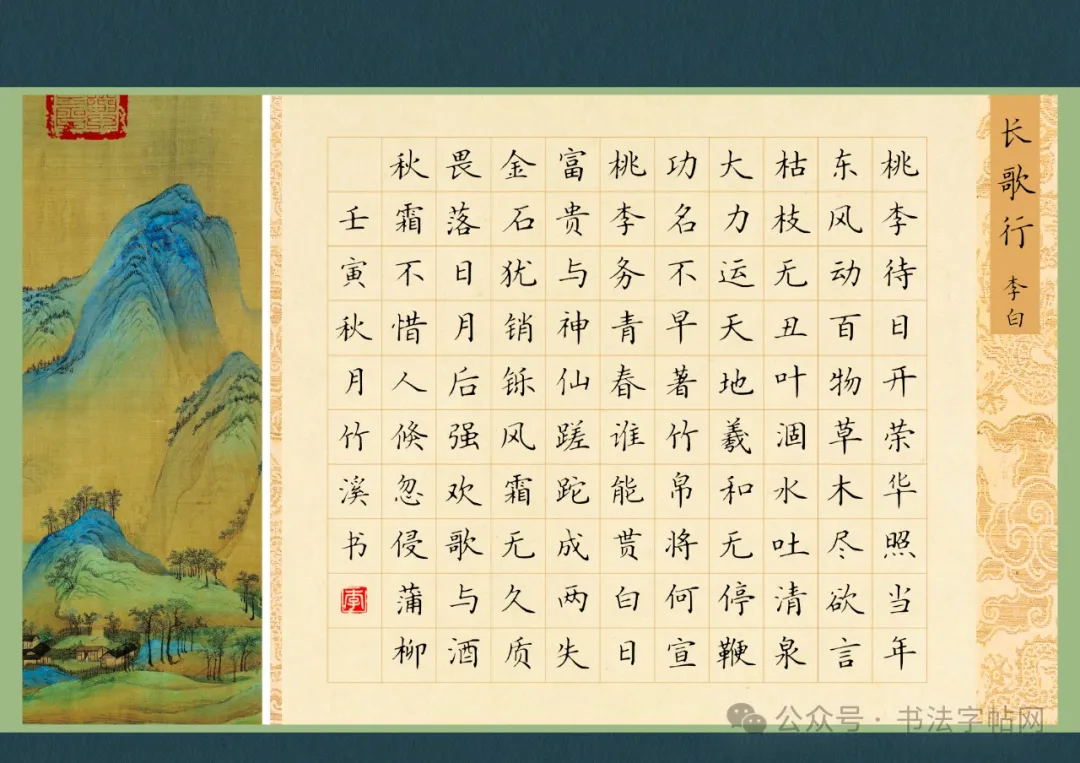 长歌行 李白
桃李待日开荣华照当年
东风动百物草木尽欲言
枯枝无丑叶涸水吐清泉
大力运天地羲和无停鞭
功名不早著竹帛将何宣
桃李务青春谁能贳白日
富贵与神仙蹉跎成两失
金石犹销铄风霜无久质
畏落日月后强欢歌与酒
秋霜不惜人倏忽侵蒲柳
壬寅秋月竹溪书
李
公众号·书法字帖网